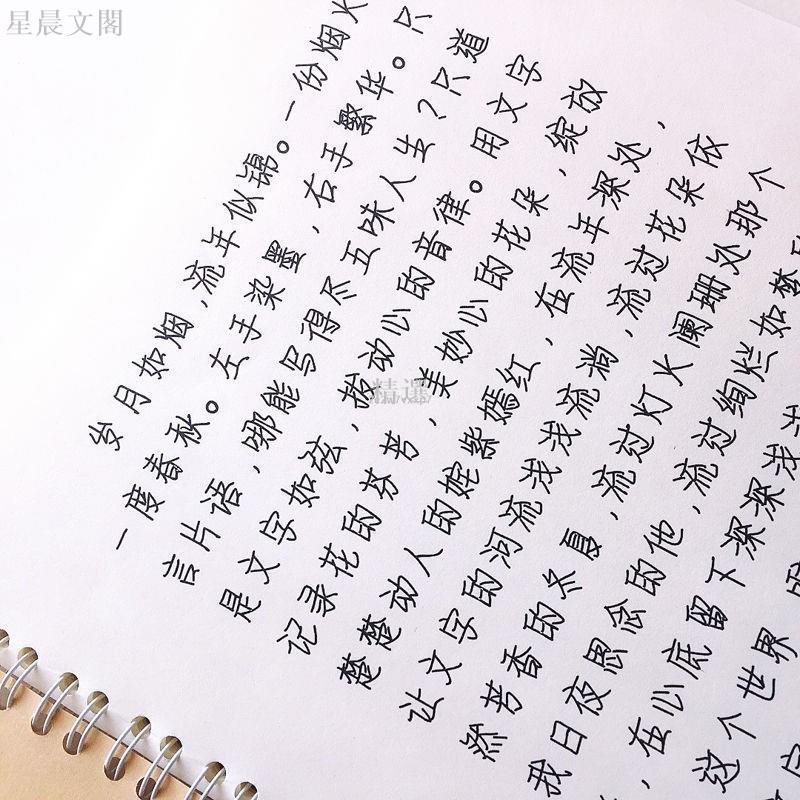 星晨文閣
岁月如烟,流年似锦。一份烟火
一度春秋。左手染墨,右手繁华。只
言片语,哪能写得尽五味人生?只道
是文字如弦,拨动心的音律。用文字
记录花的芬芳,美妙心的花朵,绽放
楚楚动人的姹紫嫣红,在流年深处,
让文字的河流浅浅流淌,流过花朵依
然芳香的冬夏,流过灯火阑珊处那个
我日夜思念的他,流过绚烂如梦
,在心底留下深深浅浅
这个世界
精選